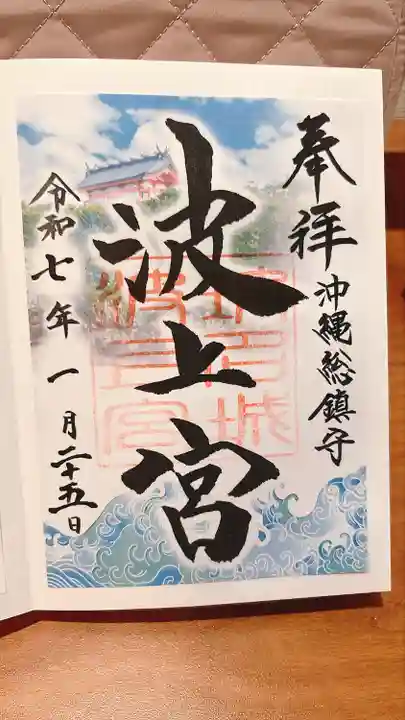 奉拝
沖縄総鎮守
波上宮
令和七年一月二十五日